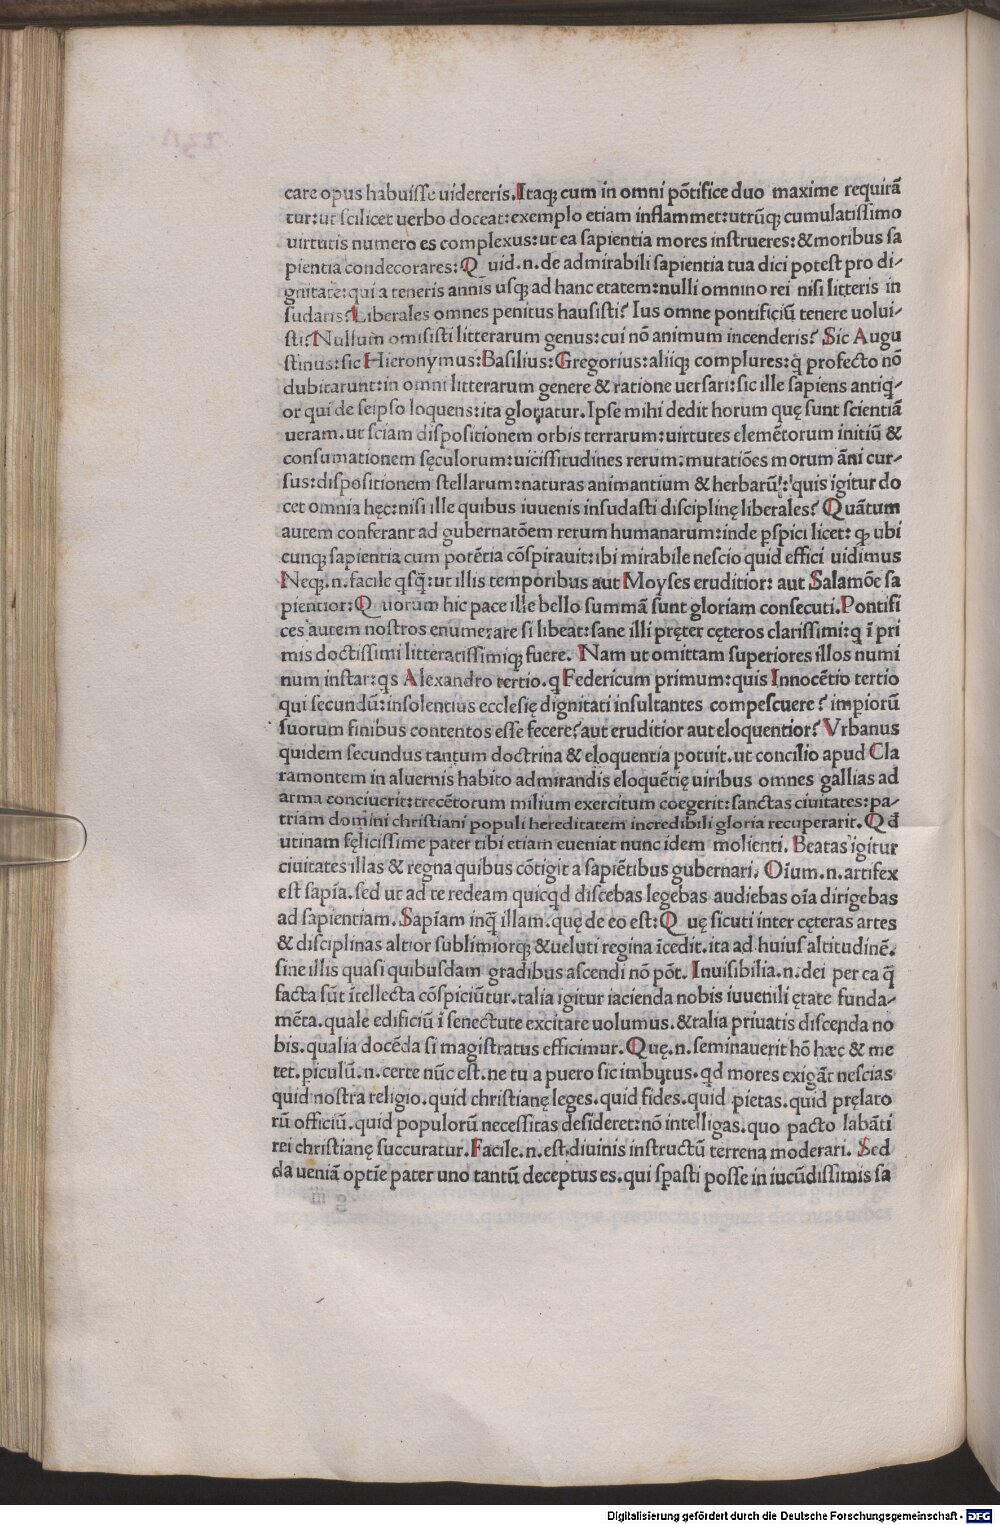 care opus habuisse uidereris. Itaq; cum in omni põtifice duo maxime requirã
tur: ut scilicet uerbo doceat: exemplo etiam inflammet: utrũq; cumulatissimo
uirtutis numero es complexus: ut ea sapientia mores instrueres: & moribus sa
pientia condecorares: Q uid .n. de admirabili sapientia tua dici potest pro di-
gnitate: qui a teneris annis usq; ad hanc etatem: nulli omnino rei nisi litteris in
sudaris? Liberales omnes penitus hausisti? Ius omne pontificiũ tenere uolui-
sti? Nullum omisisti litterarum genus: cui nõ animum incenderis? Sic Augu
stinus: sic Hieronymus: Basilius: Gregorius: aliiq; complures: q̃ profecto nõ
dubitarunt: in omni litterarum genere & ratione uersari: sic ille sapiens antiq-
or qui de seipso loquens: ita gloriatur. Ipse mihi dedit horum quę sunt scientiã
ueram. ut sciam dispositionem orbis terrarum: uirtutes elemẽtorum initiũ &
consumationem sęculorum: uicissitudines rerum: mutatiões morum ãni cur-
sus: dispositionem stellarum: naturas animantium & herbarũ: quis igitur do
cet omnia hęc: nisi ille quibus iuuenis insudasti disciplinę liberales? Quãtum
autem conferant ad gubernatõem rerum humanarum: inde ꝑspici licet: ꝙ ubi
cunq; sapientia cum potẽtia cõspirauit: ibi mirabile nescio quid effici uidimus
Neq; .n. facile qsq̃: ut illis temporibus aut Moyses eruditior: aut Salamõe sa
pientior: Q uorum hic pace ille bello summã sunt gloriam consecuti. Pontifi
ces autem nostros enumerare si libeat: sane illi pręter cęteros clarissimi: q ĩ pri
mis doctissimi litteratissimiq; fuere. Nam ut omittam superiores illos numi
num instar: qs Alexandro tertio. q Federicum primum: quis Innocẽtio tertio
qui secundũ: insolentius ecclesię dignitati insultantes compescuere? impiorũ
suorum finibus contentos esse fecere? aut eruditior aut eloquentior? Vrbanus
quidem secundus tantum doctrina & eloquentia potuit. ut concilio apud Cla
ramontem in aluernis habito admirandis eloquẽtię uiribus omnes gallias ad
arma conciuerit: trecẽtorum milium exercitum coegerit: sanctas ciuitates: pa-
triam domini christiani populi hereditatem incredibili gloria recuperarit. Q đ
utinam fęlicissime pater tibi etiam eueniat nunc idem molienti. Beatas igitur
ciuitates illas & regna quibus cõtigit a sapiẽtibus gubernari. Oĩum .n. artifex
est sapĩa. sed ut ad te redeam quicqd discebas legebas audiebas oĩa dirigebas
ad sapientiam. Sapĩam inq̃ illam. quę de eo est: Q uę sicuti inter cęteras artes
& disciplinas altior sublimiorq; & ueluti regina ĩcedit. ita ad huius altitudinẽ.
sine illis quasi quibusdam gradibus ascendi nõ põt. Inuisibilia .n. dei per ea q̃
facta sũt ĩtellecta cõspiciũtur. talia igitur iacienda nobis iuuenili ętate funda-
mẽta. quale edificiũ ĩ senectute excitare uolumus. & talia priuatis discenda no
bis. qualia docẽda si magistratus efficimur. Quę .n. seminauerit hõ hæc & me
tet. ꝑiculũ .n. certe nũc est. ne tu a puero sic imbutus. qd mores exigãt nescias
quid nostra religio. quid christianę leges. quid fides. quid pietas. quid pręlato
rũ officiũ. quid populorũ necessitas desideret: nõ intelligas. quo pacto labãti
rei christianę succuratur. Facile .n. est. diuinis instructũ terrena moderari. Sed
da ueniã optĩe pater uno tantũ deceptus es. qui spasti posse in iucũdissimis sa